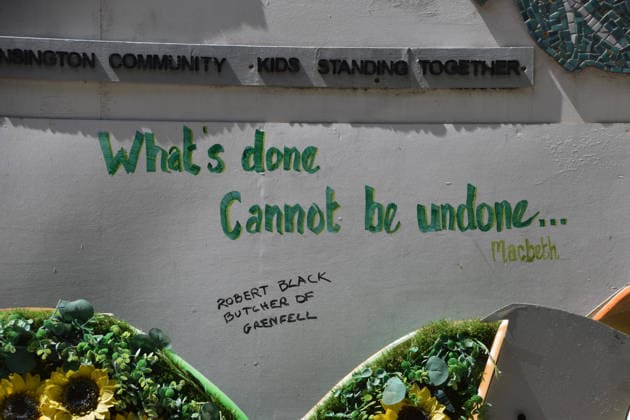 NSINGTON COMMUNITY · KIDS STANDING TOGETHER ·
What's done
Cannot be undone...
Macbeth
ROBERT BLACK
BUTCHER OF
GRENFELL